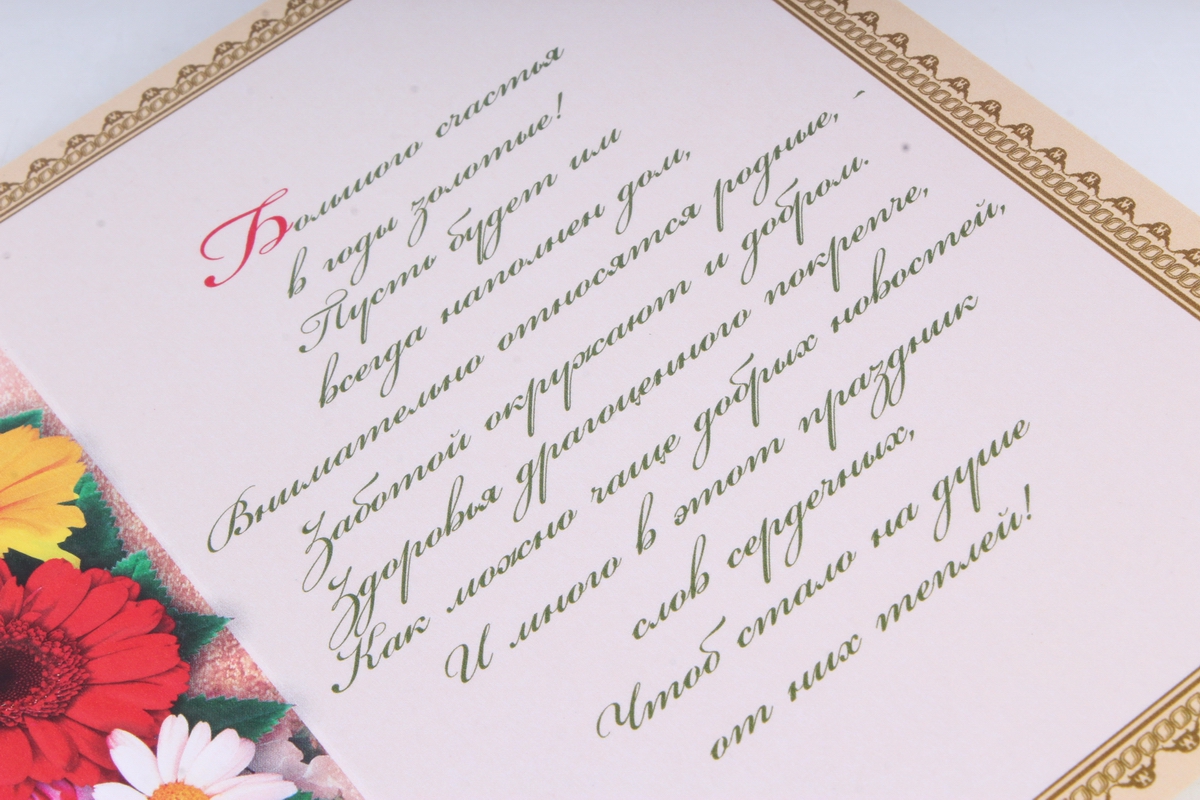 Большого счастья
в годы золотые!
Пусть будет им
всегда наполнен дом,
Внимательно относятся родные,
Заботой окружают и добром.
Здоровья драгоценного покрепче,
Как можно чаще добрых новостей,
И много в этот праздник
слов сердечных,
Чтоб стало на душе
от них теплей!